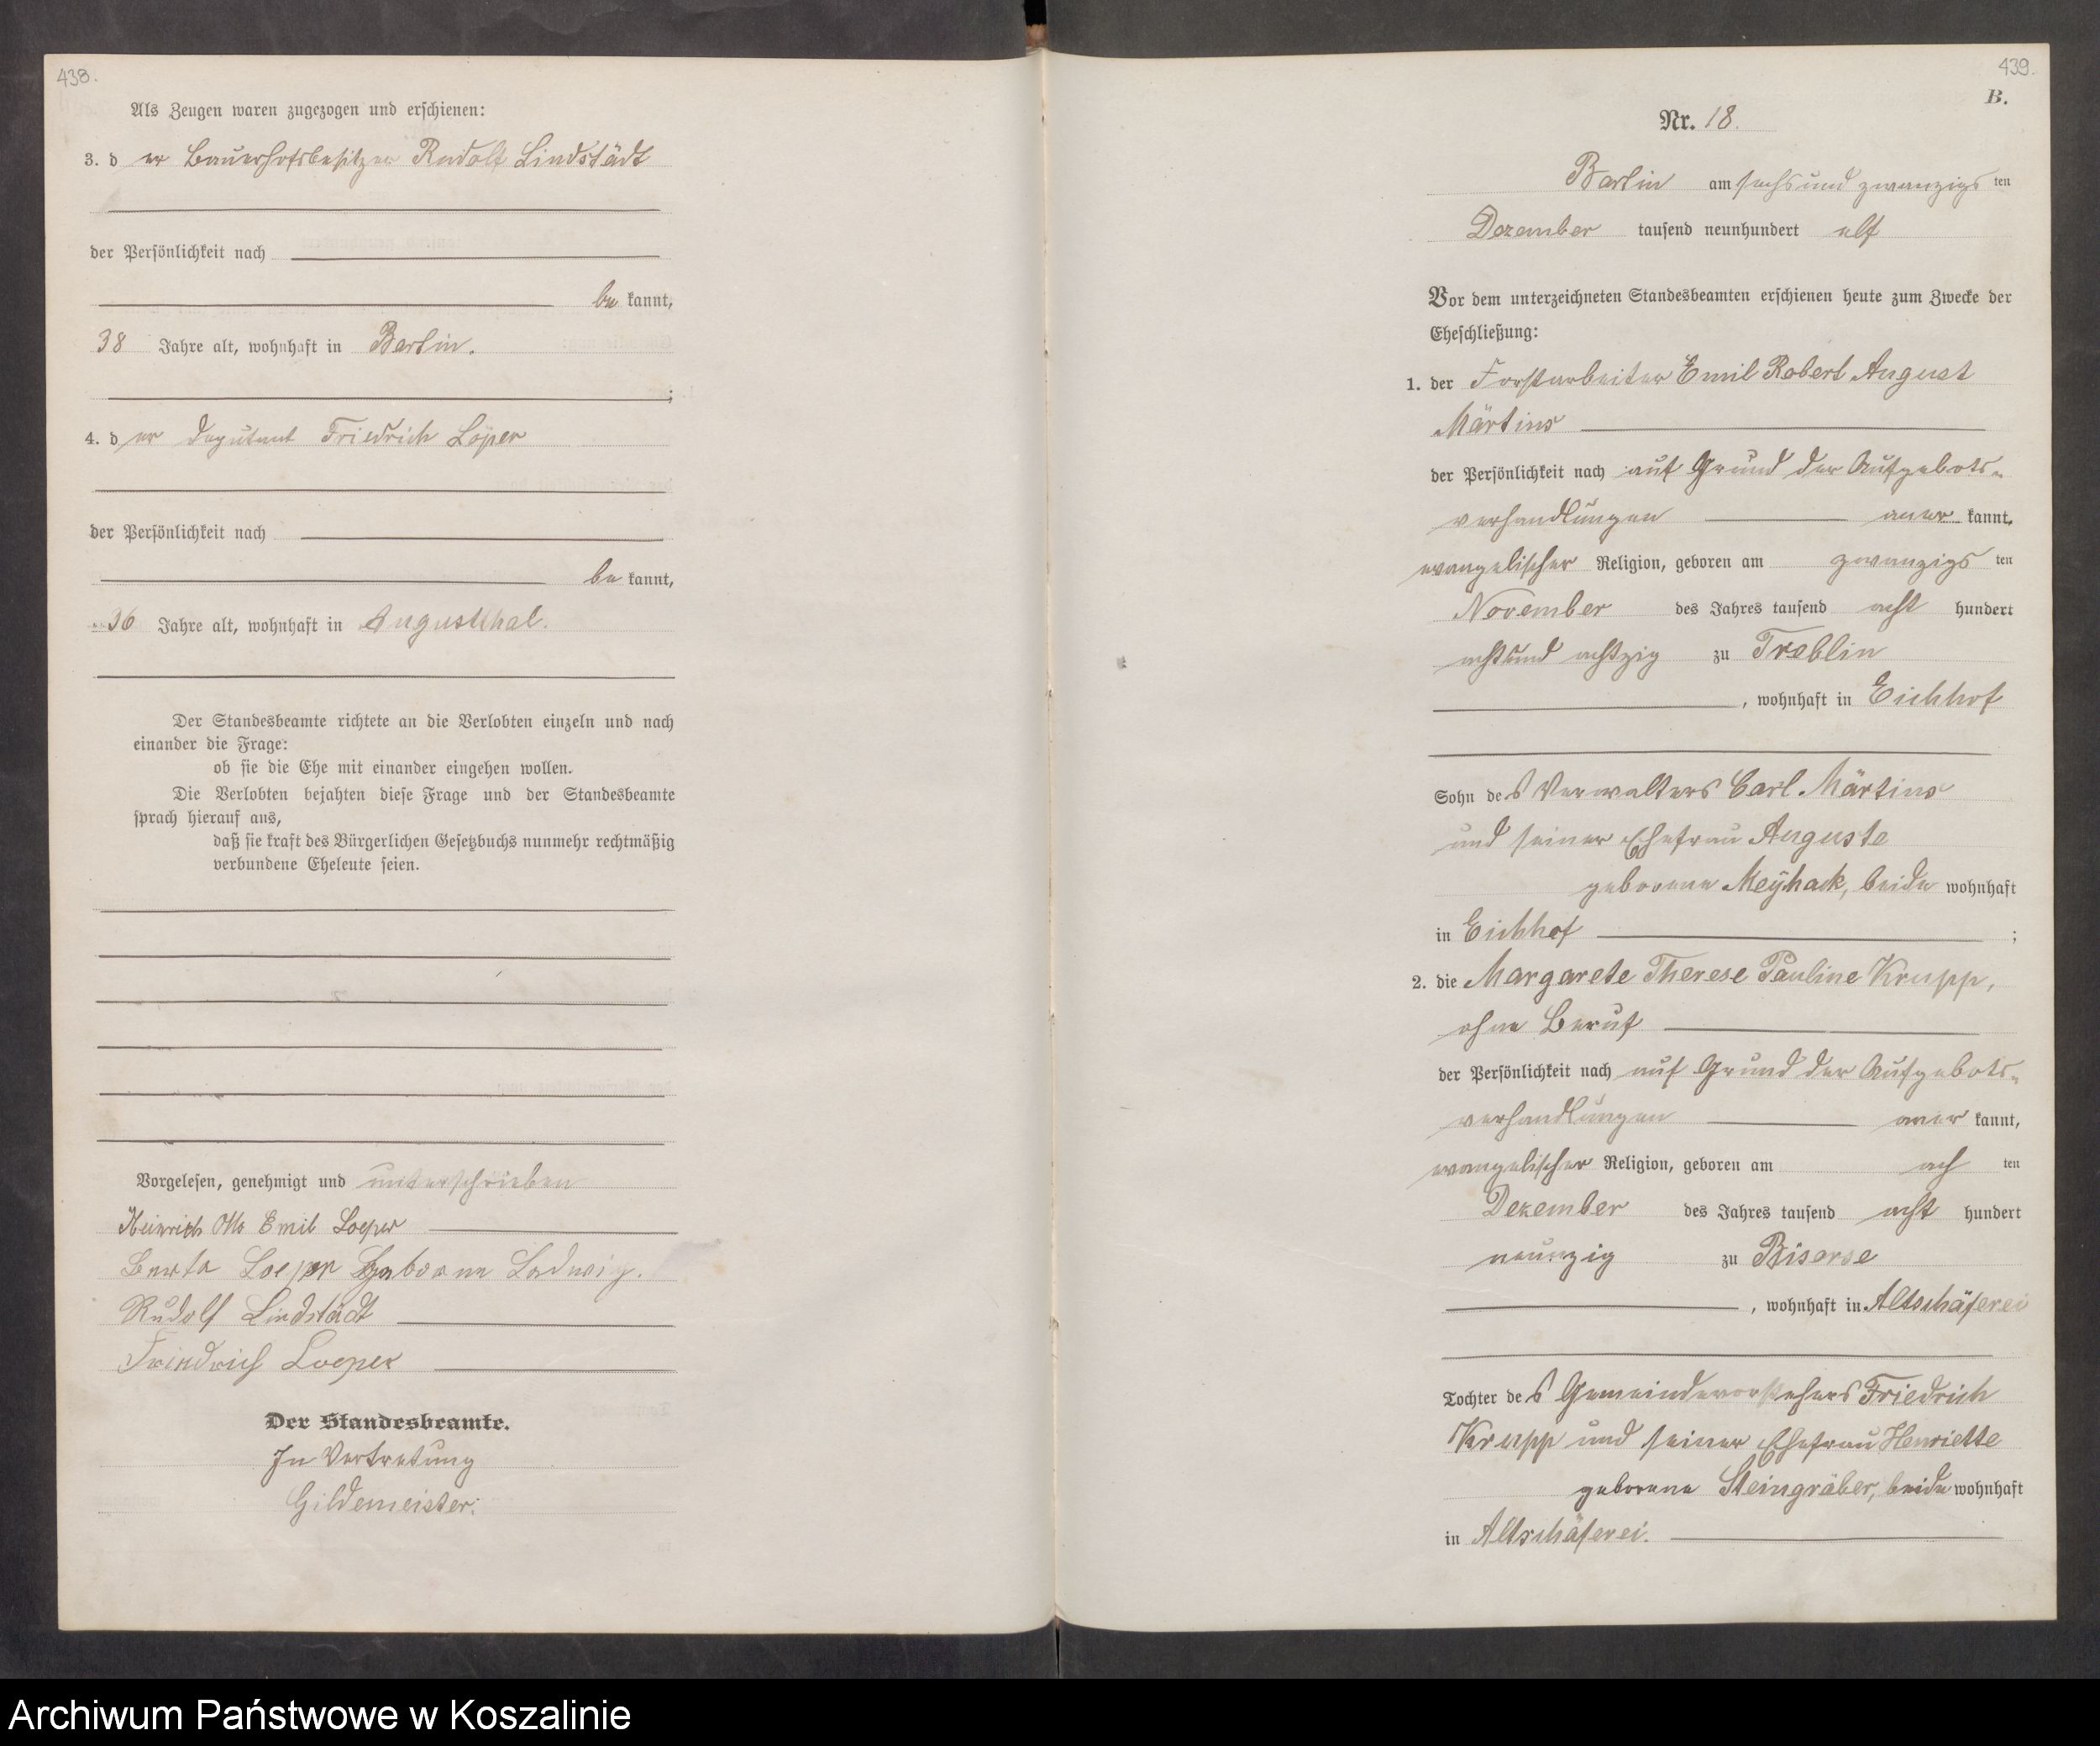 438.
Als Zeugen waren zugezogen und erschienen:
3. d er Bauerhofsbesitzer Rudolf Lindstädt
der Persönlichkeit nach
be kannt,
38 Jahre alt, wohnhaft in Bartin.
;
4. d er Deputant Friedrich Löper
der Persönlichkeit nach
be kannt,
36 Jahre alt, wohnhaft in Augustthal.
Der Standesbeamte richtete an die Verlobten einzeln und nach
einander die Frage:
ob sie die Ehe mit einander eingehen wollen.
Die Verlobten bejahten diese Frage und der Standesbeamte
sprach hierauf aus,
daß sie kraft des Bürgerlichen Gesetzbuchs nunmehr rechtmäßig
verbundene Eheleute seien.
Vorgelesen, genehmigt und unterschrieben
Heinrich Otto Emil Loeper
Berta Loeper geborene Ladwig.
Rudolf Lindstädt
Friedrich Loeper
Der Standesbeamte.
In Vertretung
Gildemeister.
439.
B.
Nr. 18.
Bartin am sechsund zwanzigs ten
Dezember tausend neunhundert elf
Vor dem unterzeichneten Standesbeamten erschienen heute zum Zwecke der
Eheschließung:
1. der Forstarbeiter Emil Robert August
Märtins
der Persönlichkeit nach auf Grund der Aufgebots-
verhandlungen aner kannt,
evangelischer Religion, geboren am zwanzigs ten
November des Jahres tausend acht hundert
achtund achtzig zu Treblin
, wohnhaft in Eichhof
Sohn des Verwalters Carl Märtins
und seiner Ehefrau Auguste
geborene Meÿhack, beide wohnhaft
in Eichhof ;
2. die Margarete Therese Pauline Krupp,
ohne Beruf
der Persönlichkeit nach auf Grund der Aufgebots-
verhandlungen aner kannt,
evangelischer Religion, geboren am ach ten
Dezember des Jahres tausend acht hundert
neunzig zu Bisorse
, wohnhaft in Altschäferei
Tochter des Gemeindevorstehers Friedrich
Krupp und seiner Ehefrau Henriette
geborene Steingräber, beide wohnhaft
in Altschäferei.
Archiwum Państwowe w Koszalinie